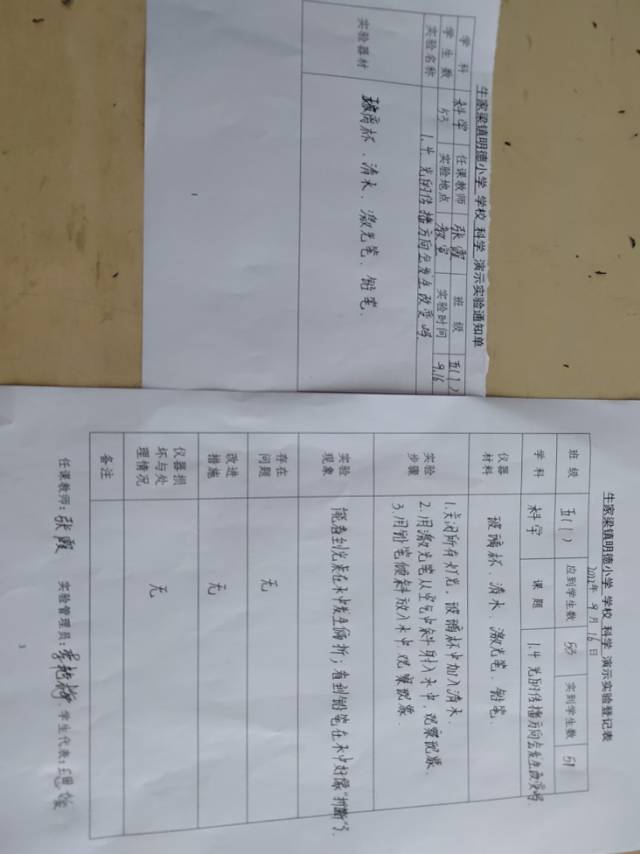 牛家梁镇明德小学 学校 科学 演示实验通知单
学 科 科学 任课教师 张霞 班 级 五(1)
学 生 数 53 实验地点 教室 实验时间 9.16
实验名称 1.4 光的传播方向会发生改变吗
实验器材 玻璃杯、清水、激光笔、铅笔.
1
牛家梁镇明德小学 学校 科学 演示实验登记表
2022年 9 月 16 日
班 级 五(1) 应到学生数 53 实到学生数 51
学 科 科学 课 题 1.4 光的传播方向会发生改变吗.
仪器
材料
玻璃杯、清水、激光笔、铅笔.
实验
步骤
1.关闭所有灯光,玻璃杯中加入清水.
2.用激光笔从空气中斜射入水中,观察现象.
3.用铅笔倾斜放入水中,观察现象.
实验
现象
能看到光束在水中发生偏折;看到铅笔在水中好像“折断”了.
存在
问题
无
改进
措施
无
仪器损
坏与处
理情况
无
备注
任课教师:张霞 实验管理员: 学生代表:
3